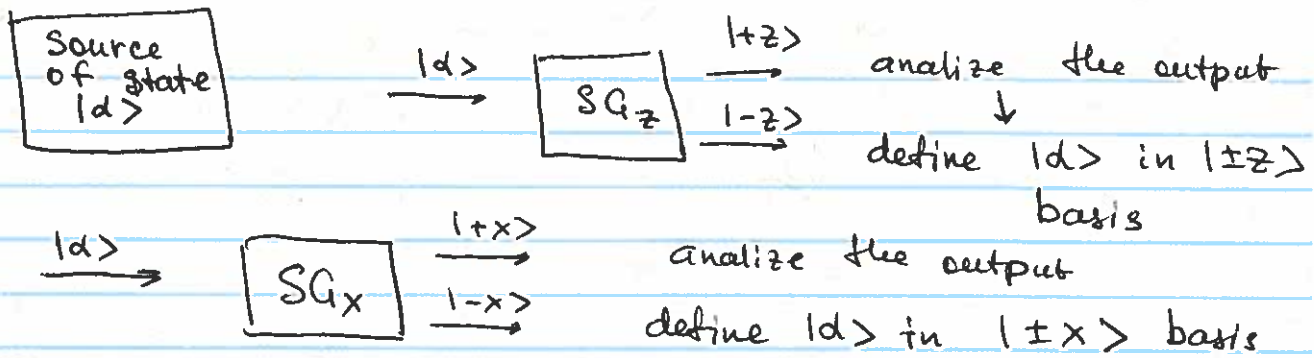 Source
of state
|α>
|α>
SG_z
|+z>
|-z>
analize the output
↓
define |α> in |±z>
basis
|α>
SG_x
|+x>
|-x>
analize the output
define |α> in |±x> basis